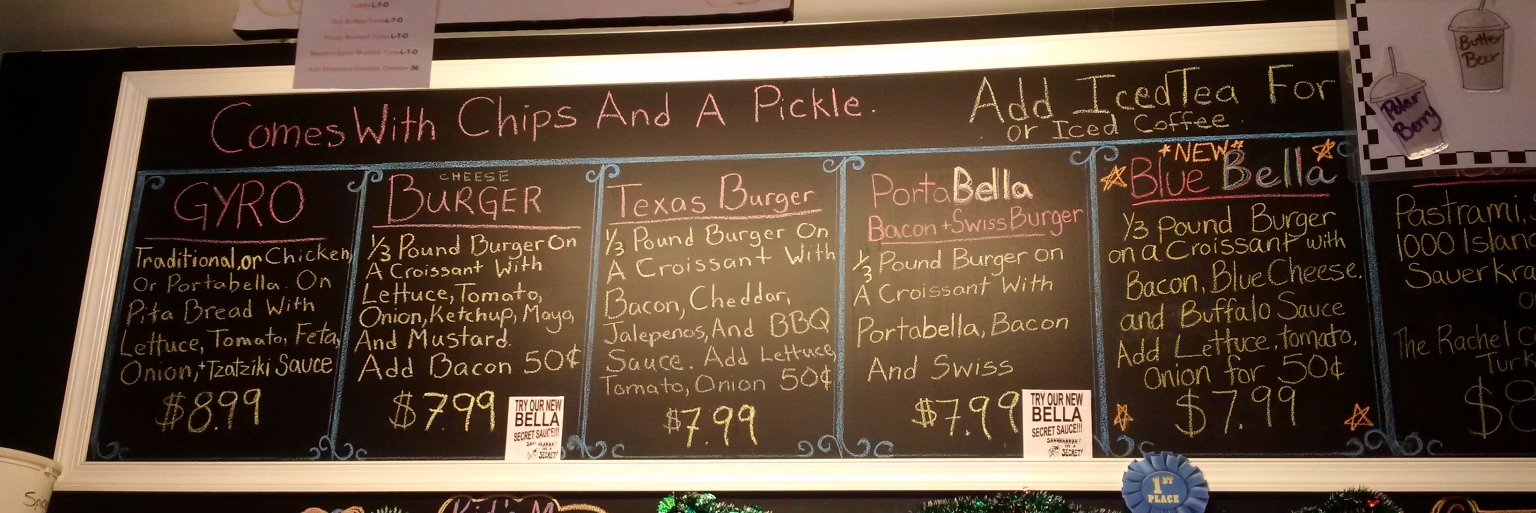 TUNA-L-T-O
Hot Buffalo Tuna-L-T-O
Honey Mustard Tuna-L-T-O
Mustard Tuna-L-T-O
Add Shredded Cheddar Cheese .50
Comes With Chips And A Pickle.
Add Iced Tea For
or Iced Coffee
Butter
Beer
Polar
Berry
GYRO
Traditional, or Chicken
Or Portabella. On
Pita Bread With
Lettuce, Tomato, Feta,
Onion,+Tzatziki Sauce
$8.99
CHEESE
BURGER
1/3 Pound Burger On
A Croissant With
Lettuce, Tomato,
Onion, Ketchup, Mayo,
And Mustard.
Add Bacon 50¢
$7.99
TRY OUR NEW
BELLA
SECRET SAUCE!!!
SECRET!
Texas Burger
1/3 Pound Burger On
A Croissant With
Bacon, Cheddar,
Jalepenos, And BBQ
Sauce. Add Lettuce,
Tomato, Onion 50¢
$7.99
PortaBella
Bacon+Swiss Burger
1/3 Pound Burger on
A Croissant With
Portabella, Bacon
And Swiss
$7.99
TRY OUR NEW
BELLA
SECRET SAUCE!!!
SECRET!
*NEW*
Blue Bella
1/3 Pound Burger
on a Croissant with
Bacon, Blue Cheese.
and Buffalo Sauce
Add Lettuce, tomato,
Onion for 50¢
$7.99
Pastrami,
1000 Island
Sauerkra
The Rachel
Turk
$8
1ST
PLACE
Kid's M